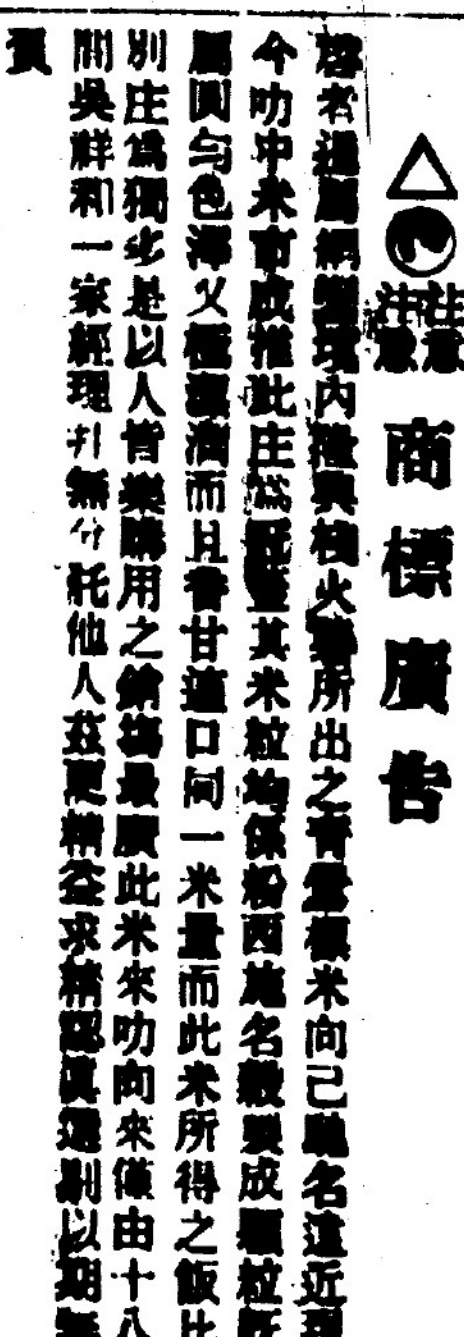 注意
注意
商標廣告
啓者暹屬網變境內隆興棧火礱所出之青雲標米向已馳名遠近現
今叻中米市咸推此庄為其米粒均係粉西施名穀製成顆粒既
屬圓勻色澤又極潔潤而且香甘適口同一米量而此米所得之飯比
別庄為獨多是以人皆樂購用之銷塲最廣此米來叻向來僅由十八
間吳祥和一家經理幷無分託他人茲更精益求精認真選剔以期無
負